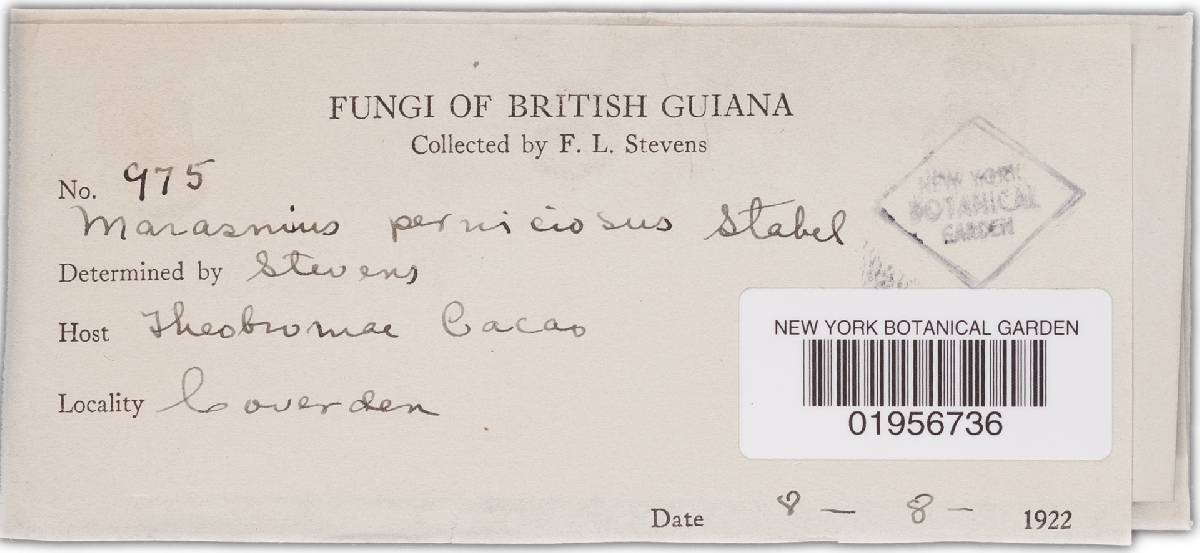 FUNGI OF BRITISH GUIANA
Collected by F. L. Stevens
No. 975
Marasmius perniciosus Stahel
Determined by Stevens
Host Theobromae Cacao
Locality Coverden
NEW YORK
BOTANICAL
GARDEN
NEW YORK BOTANICAL GARDEN
01956736
Date 8 — 8 — 1922